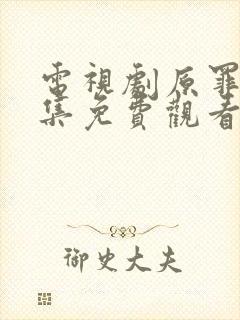 電視劇原罪
集免費觀看
御史大夫